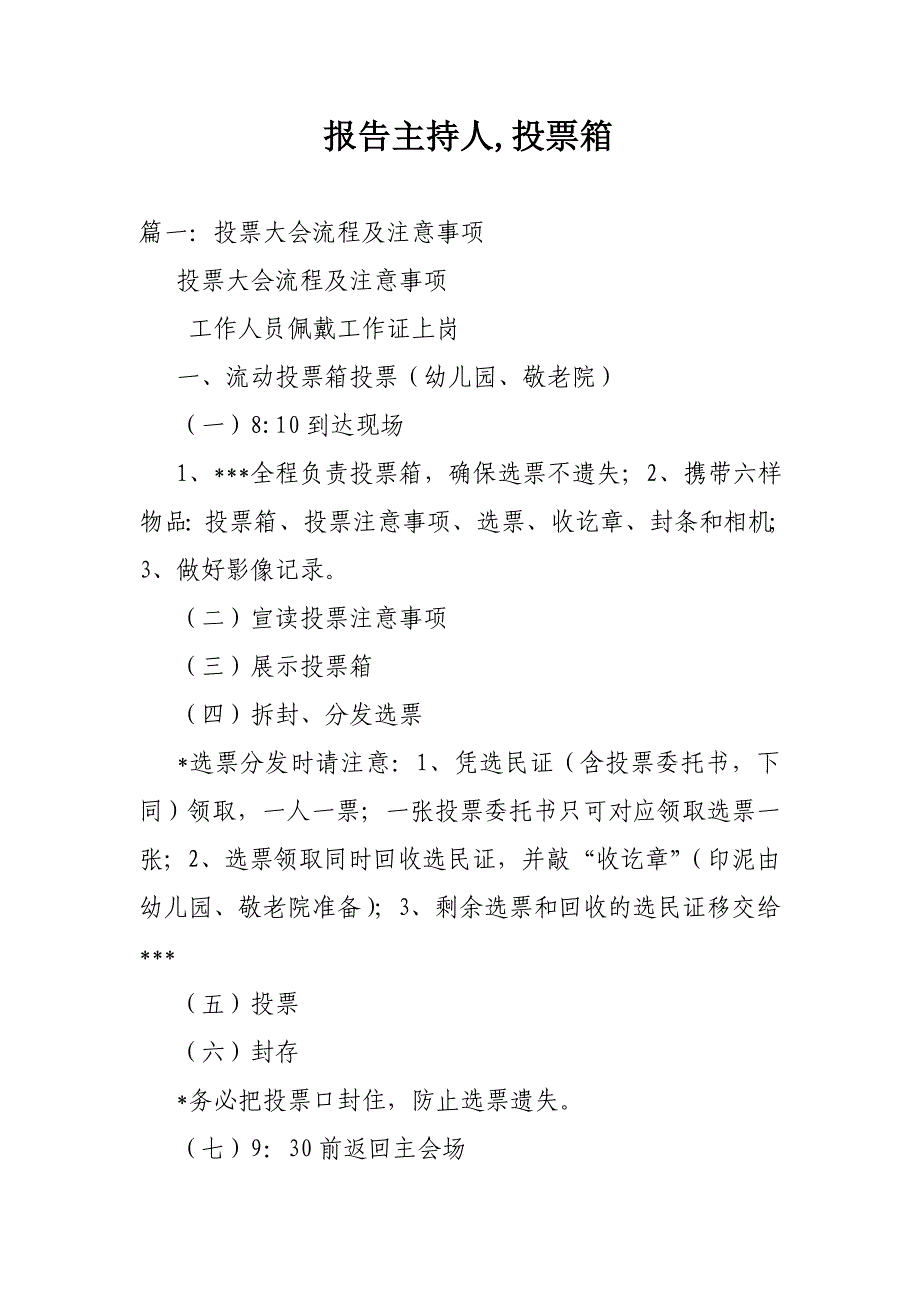 报告主持人,投票箱
篇一：投票大会流程及注意事项
投票大会流程及注意事项
工作人员佩戴工作证上岗
一、流动投票箱投票（幼儿园、敬老院）
（一）8:10 到达现场
1、***全程负责投票箱，确保选票不遗失；2、携带六样
物品：投票箱、投票注意事项、选票、收讫章、封条和相机；
3、做好影像记录。
（二）宣读投票注意事项
（三）展示投票箱
（四）拆封、分发选票
*选票分发时请注意：1、凭选民证（含投票委托书，下
同）领取，一人一票；一张投票委托书只可对应领取选票一
张；2、选票领取同时回收选民证，并敲“收讫章”（印泥由
幼儿园、敬老院准备）；3、剩余选票和回收的选民证移交给
***
（五）投票
（六）封存
*务必把投票口封住，防止选票遗失。
（七）9：30 前返回主会场